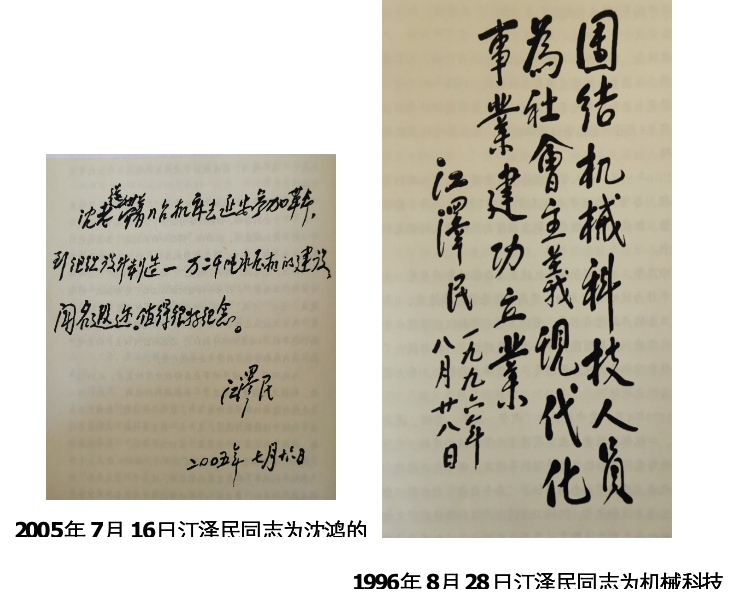 沈老带着几台机车去延安参加革命，
到组织设计制造一万二千吨水压机的建设，
闻名遐迩。值得很好纪念。
江泽民
2005年七月十六日
2005年7月16日江泽民同志为沈鸿的
团结机械科技人员
為社會主義現代化
事業建功立業
江澤民
一九九六年
八月廿八日
1996年8月28日江泽民同志为机械科技